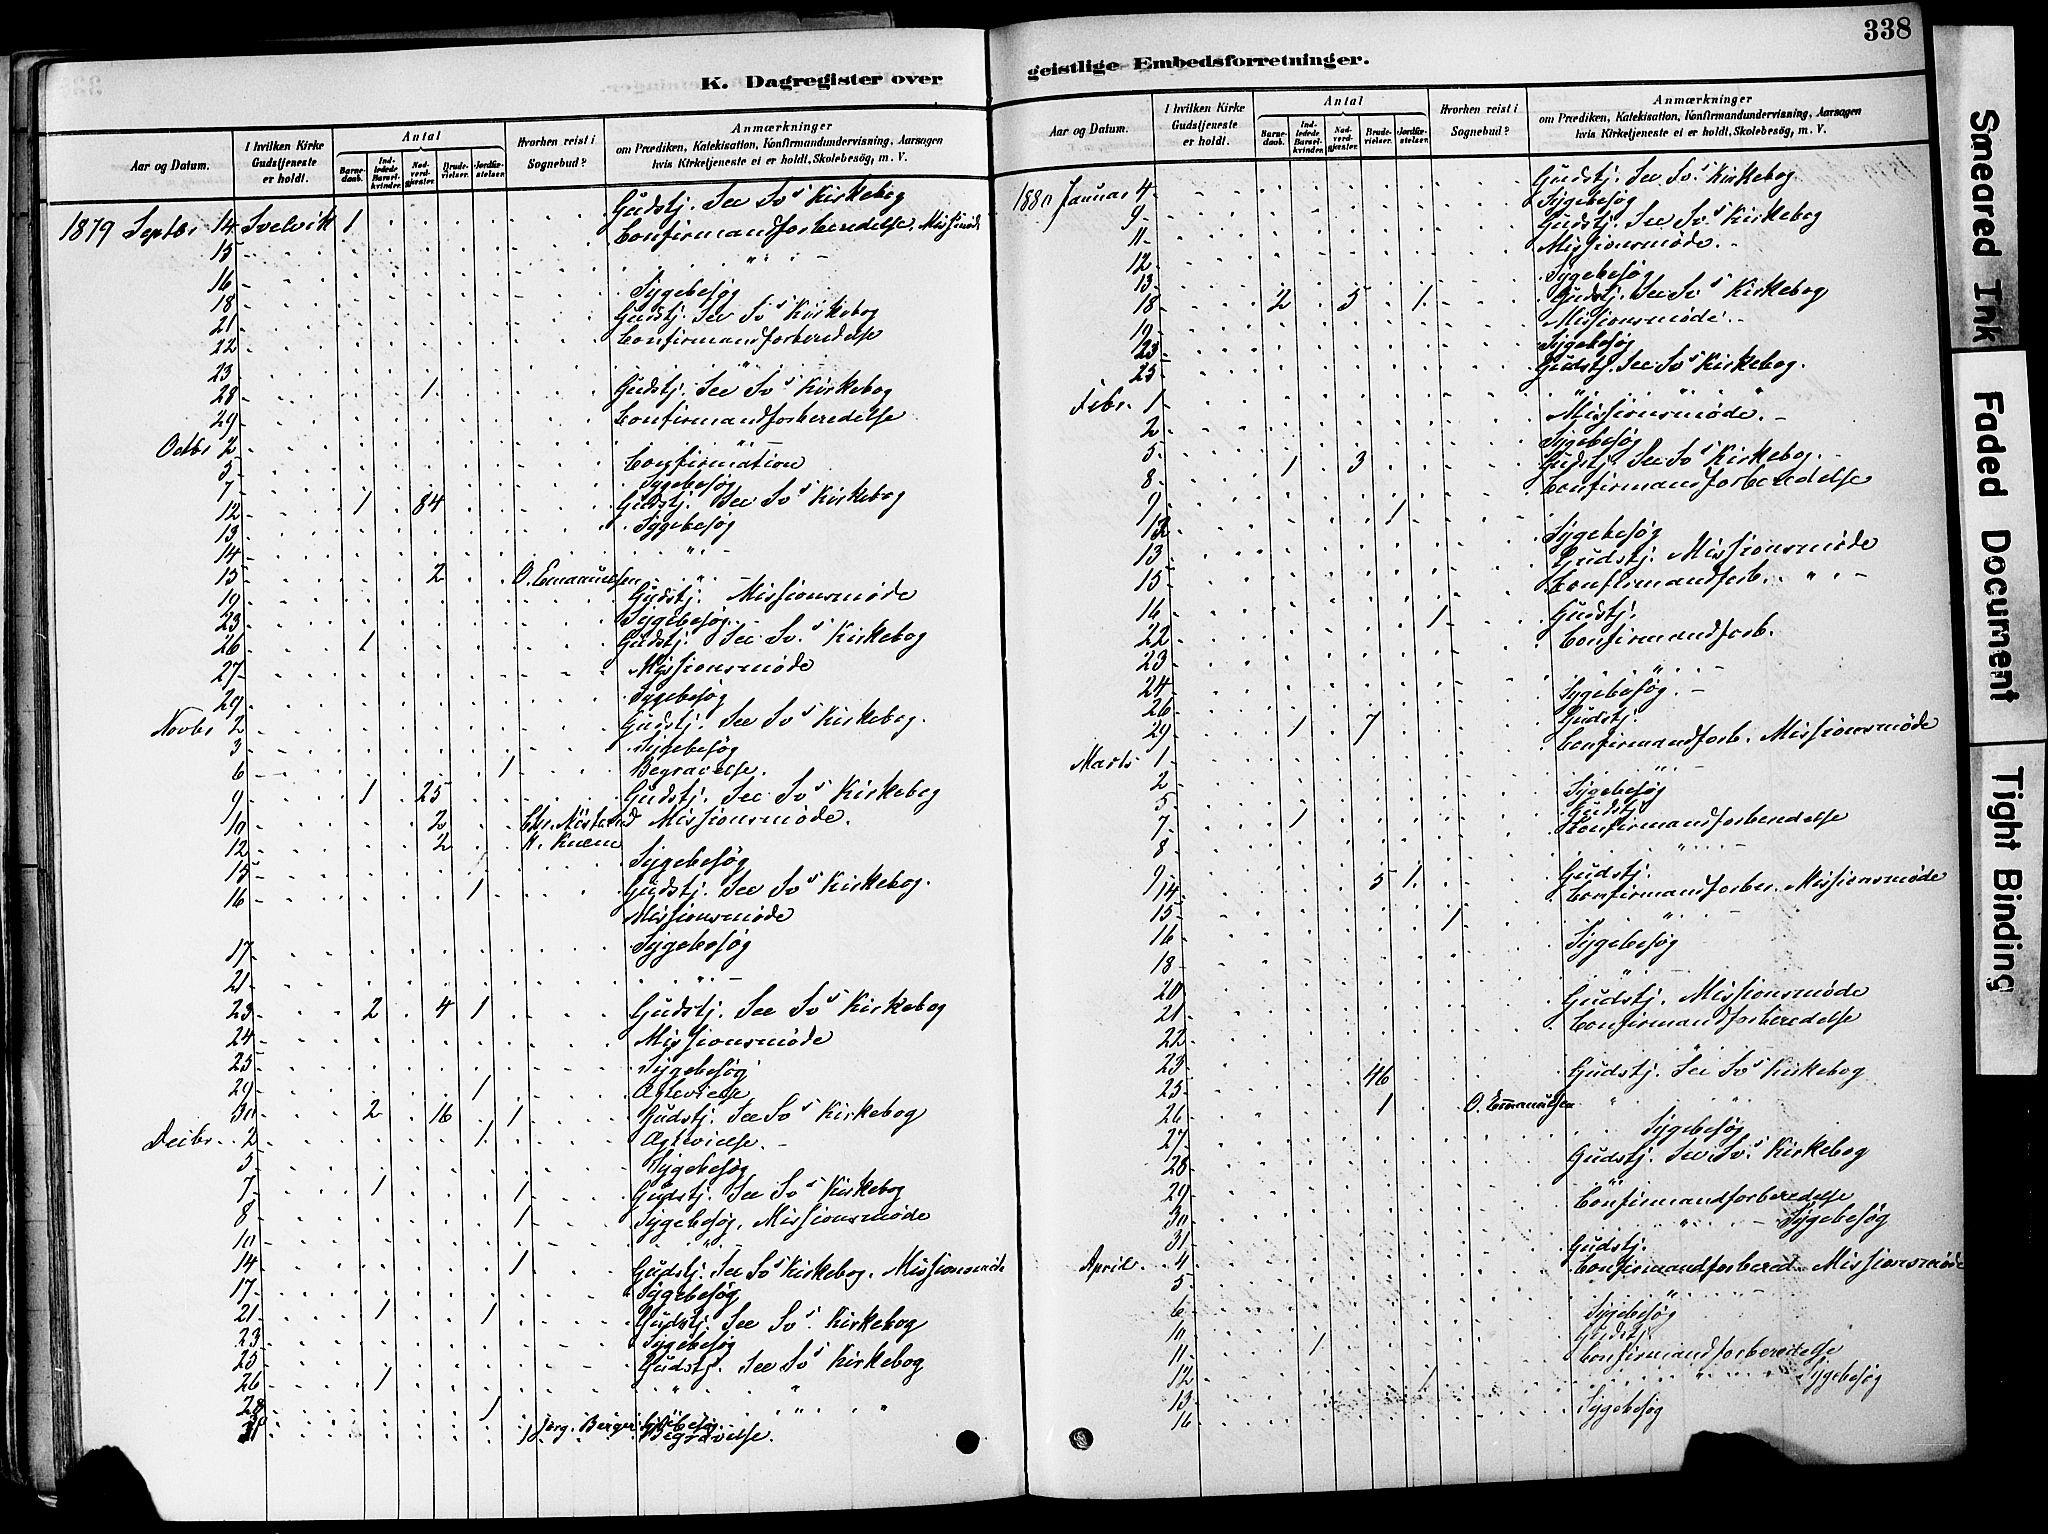 338
K. Dagregister over
geistlige Embedsforretninger.
Aar og Datum.
I hvilken Kirke Gudstjeneste er holdt.
Antal
Barnedaab.
Indledede Barselkvinder.
Nadverdgjester.
Brudevielser.
Jordfæstelser.
Hvorhen reist i Sognebud?
Anmærkninger
om Prædiken, Katekisation, Konfirmandundervisning, Aarsagen
hvis Kirketjeneste ei er holdt, Skolebesøg, m. V.
1879 Septbr 14 Svelvik 1 Gudstj. See Sv.s Kirkebog
15 Confirmandforberedelse. Missionsmøde
16 " " -
18 Sygebesøg
21 Gudstj. See Sv.s Kirkebog
22 Confirmandforberedelse
23 "
28 1 Gudstj. See Sv.s Kirkebog
29 Confirmandforberedelse
Octbr 2 "
5 Confirmation
7 Sygebesøg
12 1 84 Gudstj. See Sv.s Kirkebog
13 Sygebesøg
14 " -
15 2 O. Emanuelsen " -
19 Gudstj. - Missionsmøde
23 Sygebesøg. -
26 1 Gudstj. See Sv.s Kirkebog
27 Missionsmøde
29 Sygebesøg
Novbr 2 Gudstj. See Sv.s Kirkebog.
3 Sygebesøg
6 1 Begravelse.
9 1 25 Gudstj. See Sv.s Kirkebog
10 2 Missionsmøde.
12 2
15 Sygebesøg
16 1 Gudstj. See Sv.s Kirkebog.
Missionsmøde
17 Sygebesøg
21 " -
23 2 4 1 Gudstj. See Sv.s Kirkebog
24 Missionsmøde
25 Sygebesøg
29 1 Ægtevielse
30 2 16 1 Gudstj. See Sv.s Kirkebog
Decbr. 2 1 Ægtevielse. -
5 Sygebesøg
7 1 1 Gudstj. See Sv.s Kirkebog
8 1 Sygebesøg, Missionsmøde
10 "
14 1 Gudstj. See Sv.s Kirkebog. Missionsmøde
17 Sygebesøg
21 1 1 Gudstj. See Sv.s Kirkebog
23 Sygebesøg
25 Gudstj. See Sv.s Kirkebog
26 1 " "
28 1 " "
31 1 Jørg. Berger Sygebesøg. Begravelse.
1880 Januar 4 Gudstj. See Sv.s Kirkebog
9 Sygebesøg
11 Gudstj. See Sv.s Kirkebog
12 Missionsmøde. -
13 Sygebesøg
18 2 5 1 Gudstj. See Sv.s Kirkebog
19 Missionsmøde. -
23 Sygebesøg
25 Gudstj. See Sv.s Kirkebog.
Febr. 1 " " "
2 Missionsmøde. -
5 Sygebesøg
8 1 3 Gudstj. See Sv.s Kirkebog. -
9 Confirmandforberedelse
12 1
13 Sygebesøg
15 Gudstj. Missionsmøde
16 Confirmandforb. " " -
22 1 Gudstj.
23 Confirmandforb.
24 " -
26 Sygebesøg. -
29 1 7 Gudstj.
Marts 1 Confirmandforb. Missionsmøde
2 " -
5 Sygebesøg
7 1 Gudstj.
8 Confirmandforberedelse
9 " -
14 5 1 Gudstj.
15 Confirmandforber. Missionsmøde
16 1 " -
18 Sygebesøg
20 " -
21 Gudstj. Missionsmøde
22 Confirmandforberedelse
23 "
25 46 Gudstj. See Sv.s Kirkebog
26 1 O. Emanuelsen " "
27 Sygebesøg
28 Gudstj. See Sv.s Kirkebog
29 "
30 Confirmandforberedelse
31 " - Sygebesøg
April 4 Gudstj.
5 Confirmandforbered. Missionsmøde
6 " -
10 Sygebesøg
11 1 Gudstj.
12 Confirmandforberedelse
13 1 " Sygebesøg
16 Sygebesøg
Smeared Ink
Faded Document
Tight Binding